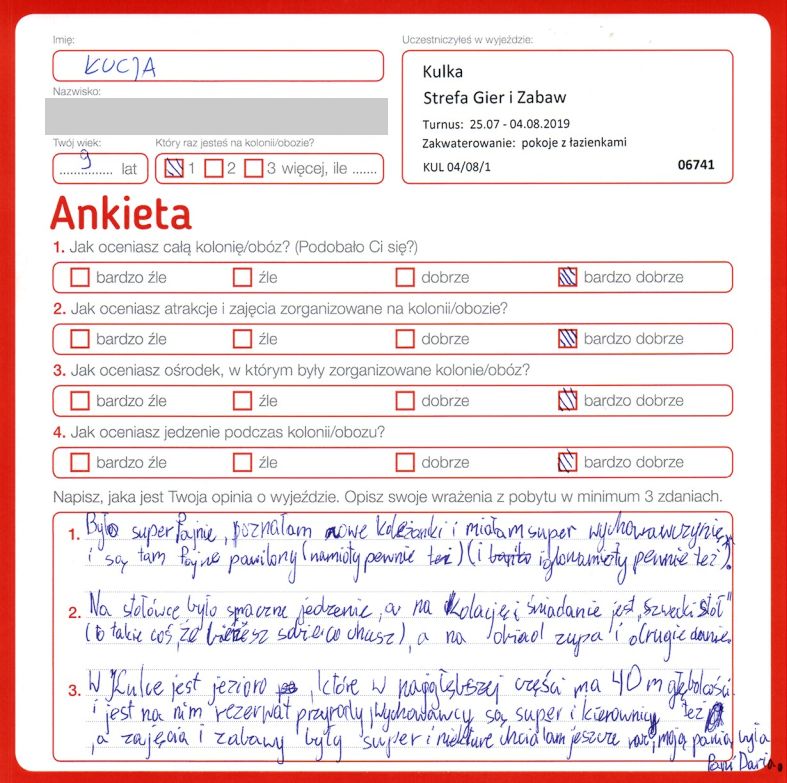 Imię:
ŁUCJA
Nazwisko:
Twój wiek:
9 lat
Który raz jesteś na kolonii/obozie?
1 2 3 więcej, ile .......
Uczestniczyłeś w wyjeździe:
Kulka
Strefa Gier i Zabaw
Turnus: 25.07 - 04.08.2019
Zakwaterowanie: pokoje z łazienkami
KUL 04/08/1 06741
Ankieta
1. Jak oceniasz całą kolonię/obóz? (Podobało Ci się?)
bardzo źle źle dobrze bardzo dobrze
2. Jak oceniasz atrakcje i zajęcia zorganizowane na kolonii/obozie?
bardzo źle źle dobrze bardzo dobrze
3. Jak oceniasz ośrodek, w którym były zorganizowane kolonie/obóz?
bardzo źle źle dobrze bardzo dobrze
4. Jak oceniasz jedzenie podczas kolonii/obozu?
bardzo źle źle dobrze bardzo dobrze
Napisz, jaka jest Twoja opinia o wyjeździe. Opisz swoje wrażenia z pobytu w minimum 3 zdaniach.
1. Było super fajnie, poznałam nowe koleżanki i miałam super wychowawczynię
i są tam fajne pawilony (namioty pewnie też) (i iglonamioty pewnie też).
2. Na stołówce było smaczne jedzenie, a na kolację i śniadanie jest "szwecki stół"
(to takie coś, że bierzesz sobie co chcesz), a na obiad zupa i drugie danie.
3. W Kulce jest jezioro, które w najgłębszej części ma 40 m głębokości
i jest na nim rezerwat przyrody, wychowawcy są super i kierownicy też
, a zajęcia i zabawy były super i niektóre chciałam jeszcze raz, moją panią była
Pani Daria.